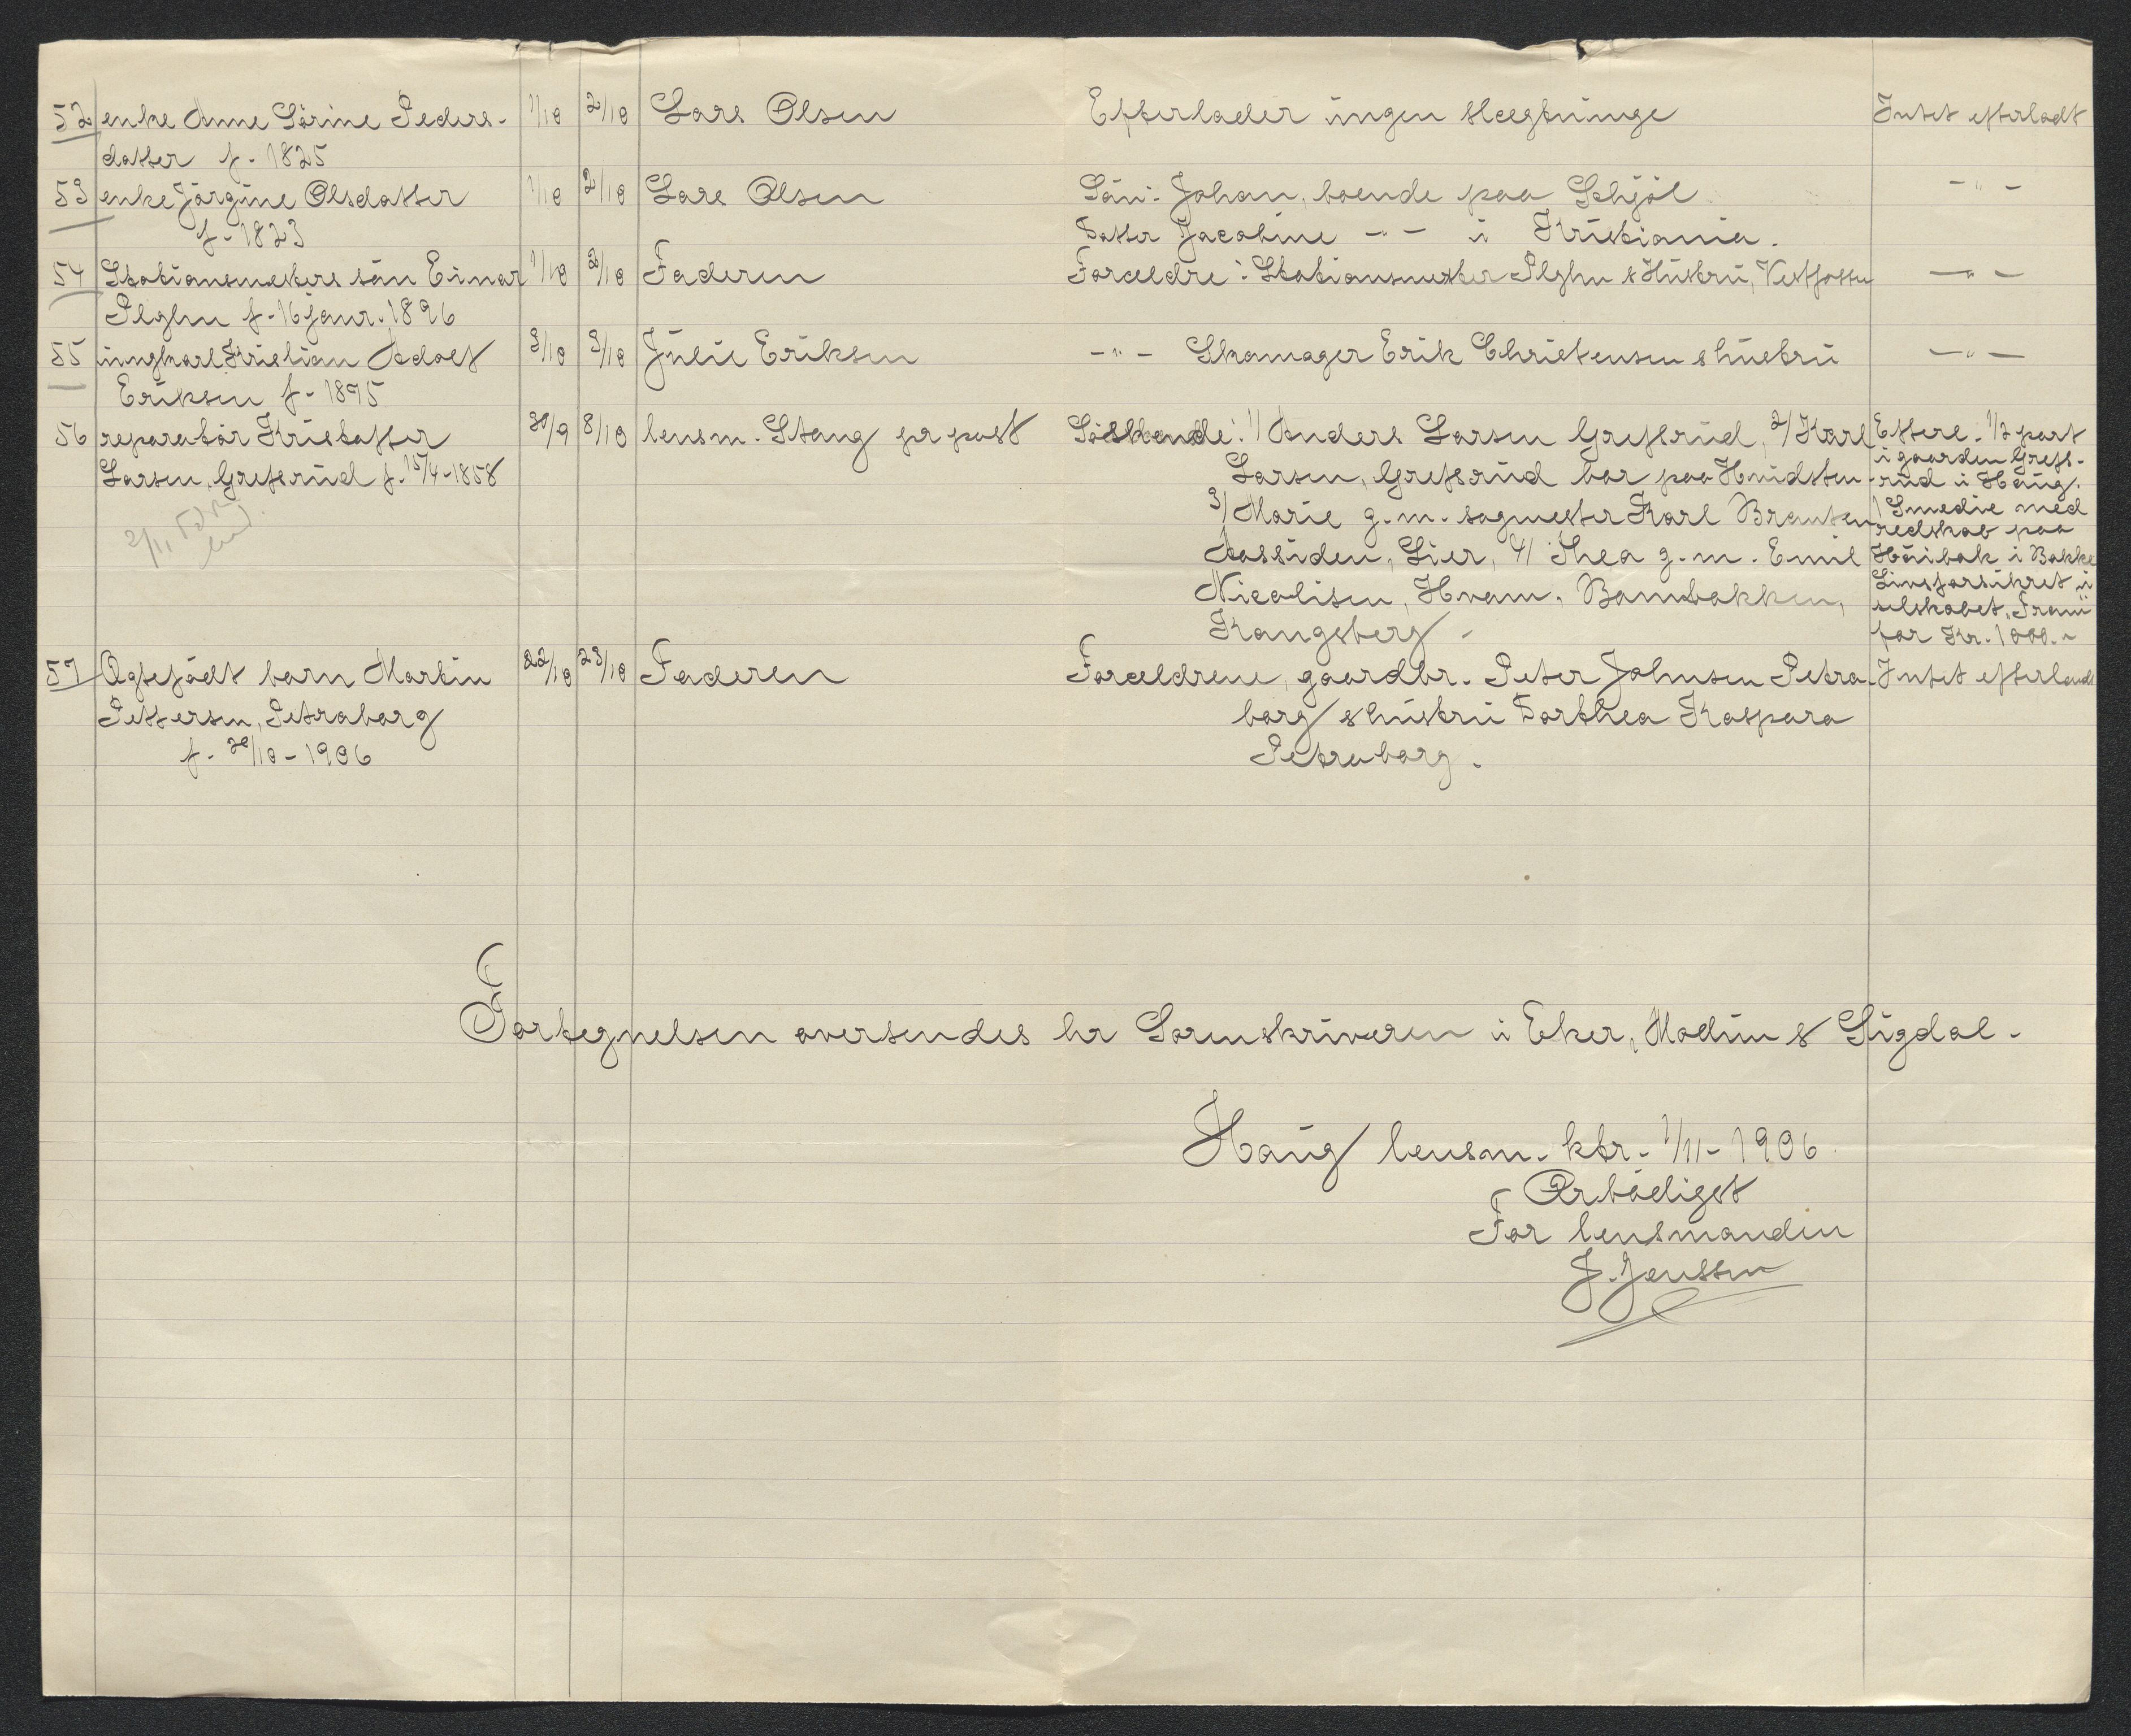 52 enke Anne Sørine Peders- 1/10 2/10 Lars Olsen Efterlader ingen slægtninge Intet efterladt
datter f. 1825
53 enke Jørgine Olsdatter 1/10 2/10 Lars Olsen Søn: Johan, boende paa Schjøl - " -
f. 1823 Datter Jacobine - " - i Kristiania.
54 Stationsmesters søn Einar 1/10 3/10 Faderen Forældre: Stationsmester & Hustru, Vestfossen - " -
f. 16 janr. 1896
55 ungkarl Kristian Adolf 3/10 3/10 Julie Eriksen - " - Skomager Erik Christensen & hustru - " -
Eriksen f. 1895
56 reparatør Kristoffer 30/9 8/10 lensm. Stang pr post Søskende: 1/ Anders Larsen Grefsrud, 2/ Karl Efterl. 1/2 part
i gaarden Grefs-
Larsen, Grefsrud f. 15/4-1858 Larsen, Grefsrud bor paa Hvidsten rud i Haug.
3/ Marie g. m. sagmester Karl Brautsen Smedie med
redskab paa
2/11
Aassiden, Lier, 4/ Thea g. m. Emil Høibak i Bakke
Nicolisen, Hvam, Bambakken, Livsforsikret i
selskabet Fram
Kongsberg. for Kr. 1000.-
57 Ægtefødt barn Martin 22/10 23/10 Faderen Forældrene, gaardbr. Peter Johnsen Petra- Intet efterladt
Pettersen, Petraborg borg & hustru Dorthea Kaspara
f. 20/10-1906 Petraborg.
Fortegnelsen oversendes hr Sorenskriveren i Eker, Modum & Sigdal.
Haug lensm. ktr. 1/11-1906.
Ærbødigst
For lensmanden
J. Jenssen